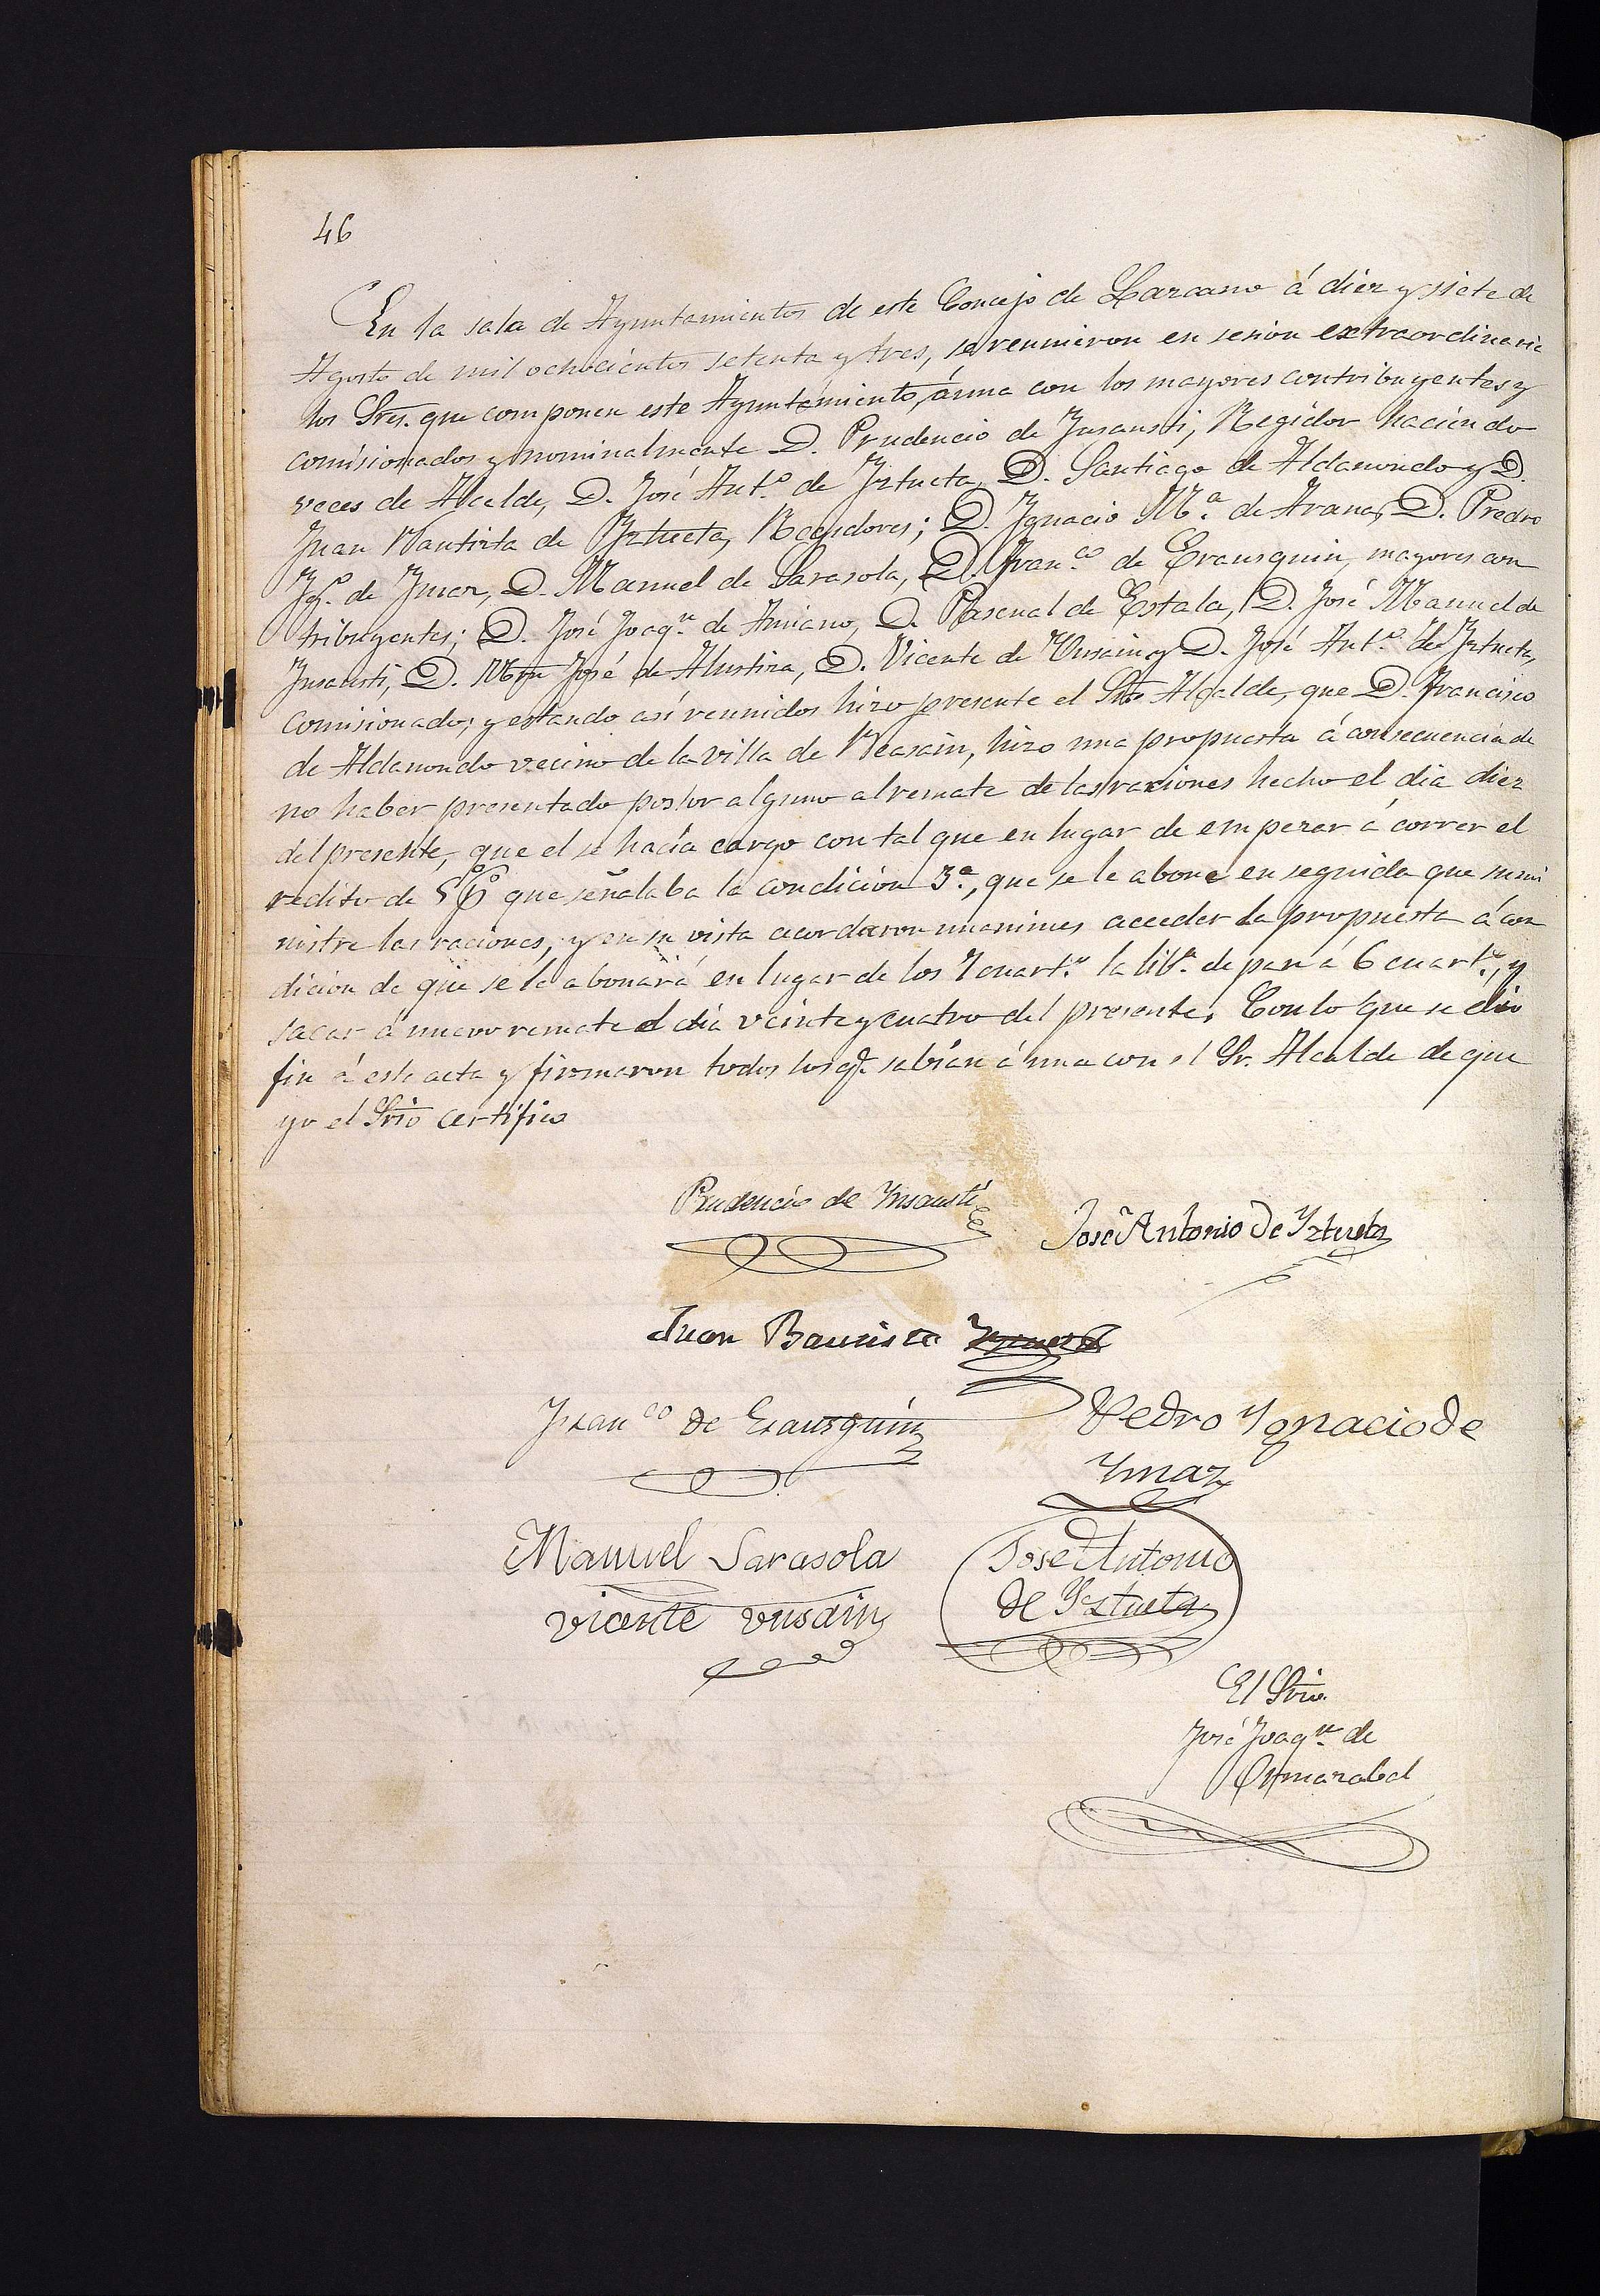 46
En la sala de Ayuntamientos de este Concejo de Lazcano á diez y siete de
Agosto de mil ochocientos setenta y tres, se reunieron en sesion extraordinaria
los Sres. que componen este Ayuntamiento, áuna con los mayores contribuyentes y
comisionados y nominalmente D. Prudencio de Insausti, Regidor haciendo
veces de Alcalde, D. José Ant.º de Iztueta, D. Santiago de Aldanondo y D.
Juan Bautista de Iztueta, Regidores; D. Ignacio M.ª de Arana, D. Predro
Ig.º de Imaz, D. Manuel de Sarasola, D. Fran.co de Erausquin, mayores con
tribuyentes; D. José Joaq.n de Amiano, D. Pascual de Estala, D. José Manuel de
Insausti, D. José de Alustiza, D. Vicente de Unsain y D. José Ant.º de Iztueta,
comisionados; y estando así reunidos hizo presente el Alcalde, que D. Francisco
de Aldanondo vecino de la villa de Beasain, hizo una propuesta á consecuencia de
no haber presentado postor alguno al remate de las raciones hecho el dia diez
del presente, que el se hacía cargo con tal que en lugar de empezar á correr el
redito de que señalaba la condición 3.ª, que se le abone en seguida que sumi
nistre las raciones, y en su vista acordaron unanimes acceder la propuesta á con
dicion de que se le abonará en lugar de los 7 cuart.s la lib.ª de pan á 6 cuart.s, y
sacar á nuevo remate el dia veinte y cuatro del presente. Con lo que se dio
fin á este acta y firmaron todos los q.e sabían á una con el Sr. Alcalde de que
yo el Srio certifico
Prudencio de Insausti
José Antonio de Yztueta
Juan Bautista Yztueta
Fran co de Erausquin
Pedro Ygnacio de
Ymaz
Manuel Sarasola
José Antonio
de Yztueta
vicente unsain
El Srio.
José Joaq.n de